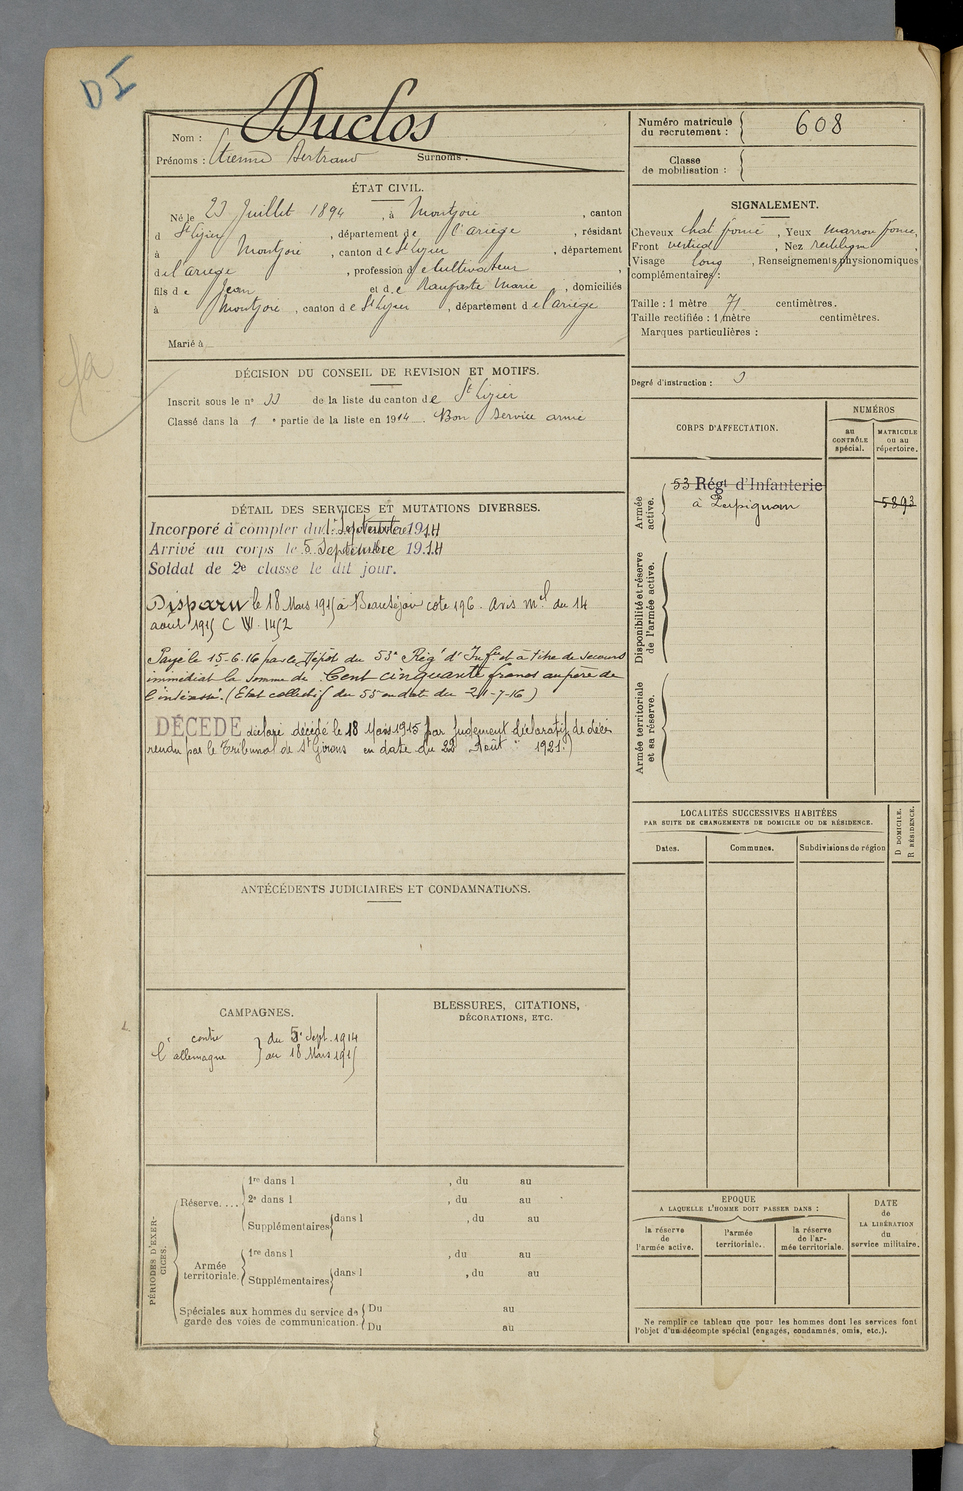 DI
Nom : Duclos
Prénoms : Etienne Bertrand Surnoms :
ÉTAT CIVIL.
Né le 23 Juillet 1894, à Montjoie, canton
d St Lizier, département de l'ariège, résidant
à Montjoie, canton de St Lizier, département
de l'ariège, profession de Cultivateur,
fils de Jean et de Raufaste Marie, domiciliés
à Montjoie, canton de St Lizier, département de l'ariège
Marié à
DÉCISION DU CONSEIL DE REVISION ET MOTIFS.
Inscrit sous le n° 33 de la liste du canton de St Lizier
Classé dans la 1e partie de la liste en 1914. Bon service armé
DÉTAIL DES SERVICES ET MUTATIONS DIVERSES.
Incorporé à compter du 1er Septembre 1914
Arrivé au corps le 5 Septembre 1914
Soldat de 2e classe le dit jour.
Disparu le 18 Mars 1915 à Beauséjour cote 196. Avis mel du 14
aout 1915 C W. 1452
Payé le 15-6-16 par le Dépôt du 53e Rég' d'Infie et à titre de secours
immédiat la somme de Cent cinquante francs au père de
l'intéressé. (Etat collectif du 53 en dat du 21-7-16)
DÉCÉDÉ déclaré décédé le 18 Mars 1915 par Jugement déclaratif de décès
rendu par le Tribunal de St Girons en date du 22 Août 1921.)
ANTÉCÉDENTS JUDICIAIRES ET CONDAMNATIONS.
CAMPAGNES.
contre l'allemagne } du 5 Sept. 1914
au 18 Mars 1915
BLESSURES, CITATIONS,
DÉCORATIONS, ETC.
PÉRIODES D'EXERCICES.
Réserve....
1re dans l , du au
2e dans l , du au
Supplémentaires dans l , du au
Armée territoriale.
1re dans l , du au
Supplémentaires dans l , du au
Spéciales aux hommes du service de Du au
garde des voies de communication. Du au
Numéro matricule
du recrutement : 608
Classe
de mobilisation :
SIGNALEMENT.
Cheveux chat foncé, Yeux marron foncé,
Front vertical, Nez rectiligne,
Visage long, Renseignements physionomiques
complémentaires :
Taille : 1 mètre 71 centimètres.
Taille rectifiée : 1 mètre centimètres.
Marques particulières :
Degré d'instruction : 3
CORPS D'AFFECTATION.
NUMÉROS
au
CONTRÔLE
spécial.
MATRICULE
ou au
répertoire.
Armée
active.
53 Régt d'Infanterie
à Perpignan
5893
Disponibilité et réserve
de l'armée active.
Armée territoriale
et sa réserve.
LOCALITÉS SUCCESSIVES HABITÉES
PAR SUITE DE CHANGEMENTS DE DOMICILE OU DE RÉSIDENCE.
D. DOMICILE.
R. RÉSIDENCE.
Dates. Communes. Subdivisions de région
EPOQUE
A LAQUELLE L'HOMME DOIT PASSER DANS :
la réserve
de
l'armée active.
l'armée
territoriale.
la réserve
de l'ar-
mée territoriale.
DATE
de
LA LIBÉRATION
du
service militaire.
Ne remplir ce tableau que pour les hommes dont les services font
l'objet d'un décompte spécial (engagés, condamnés, omis, etc.).